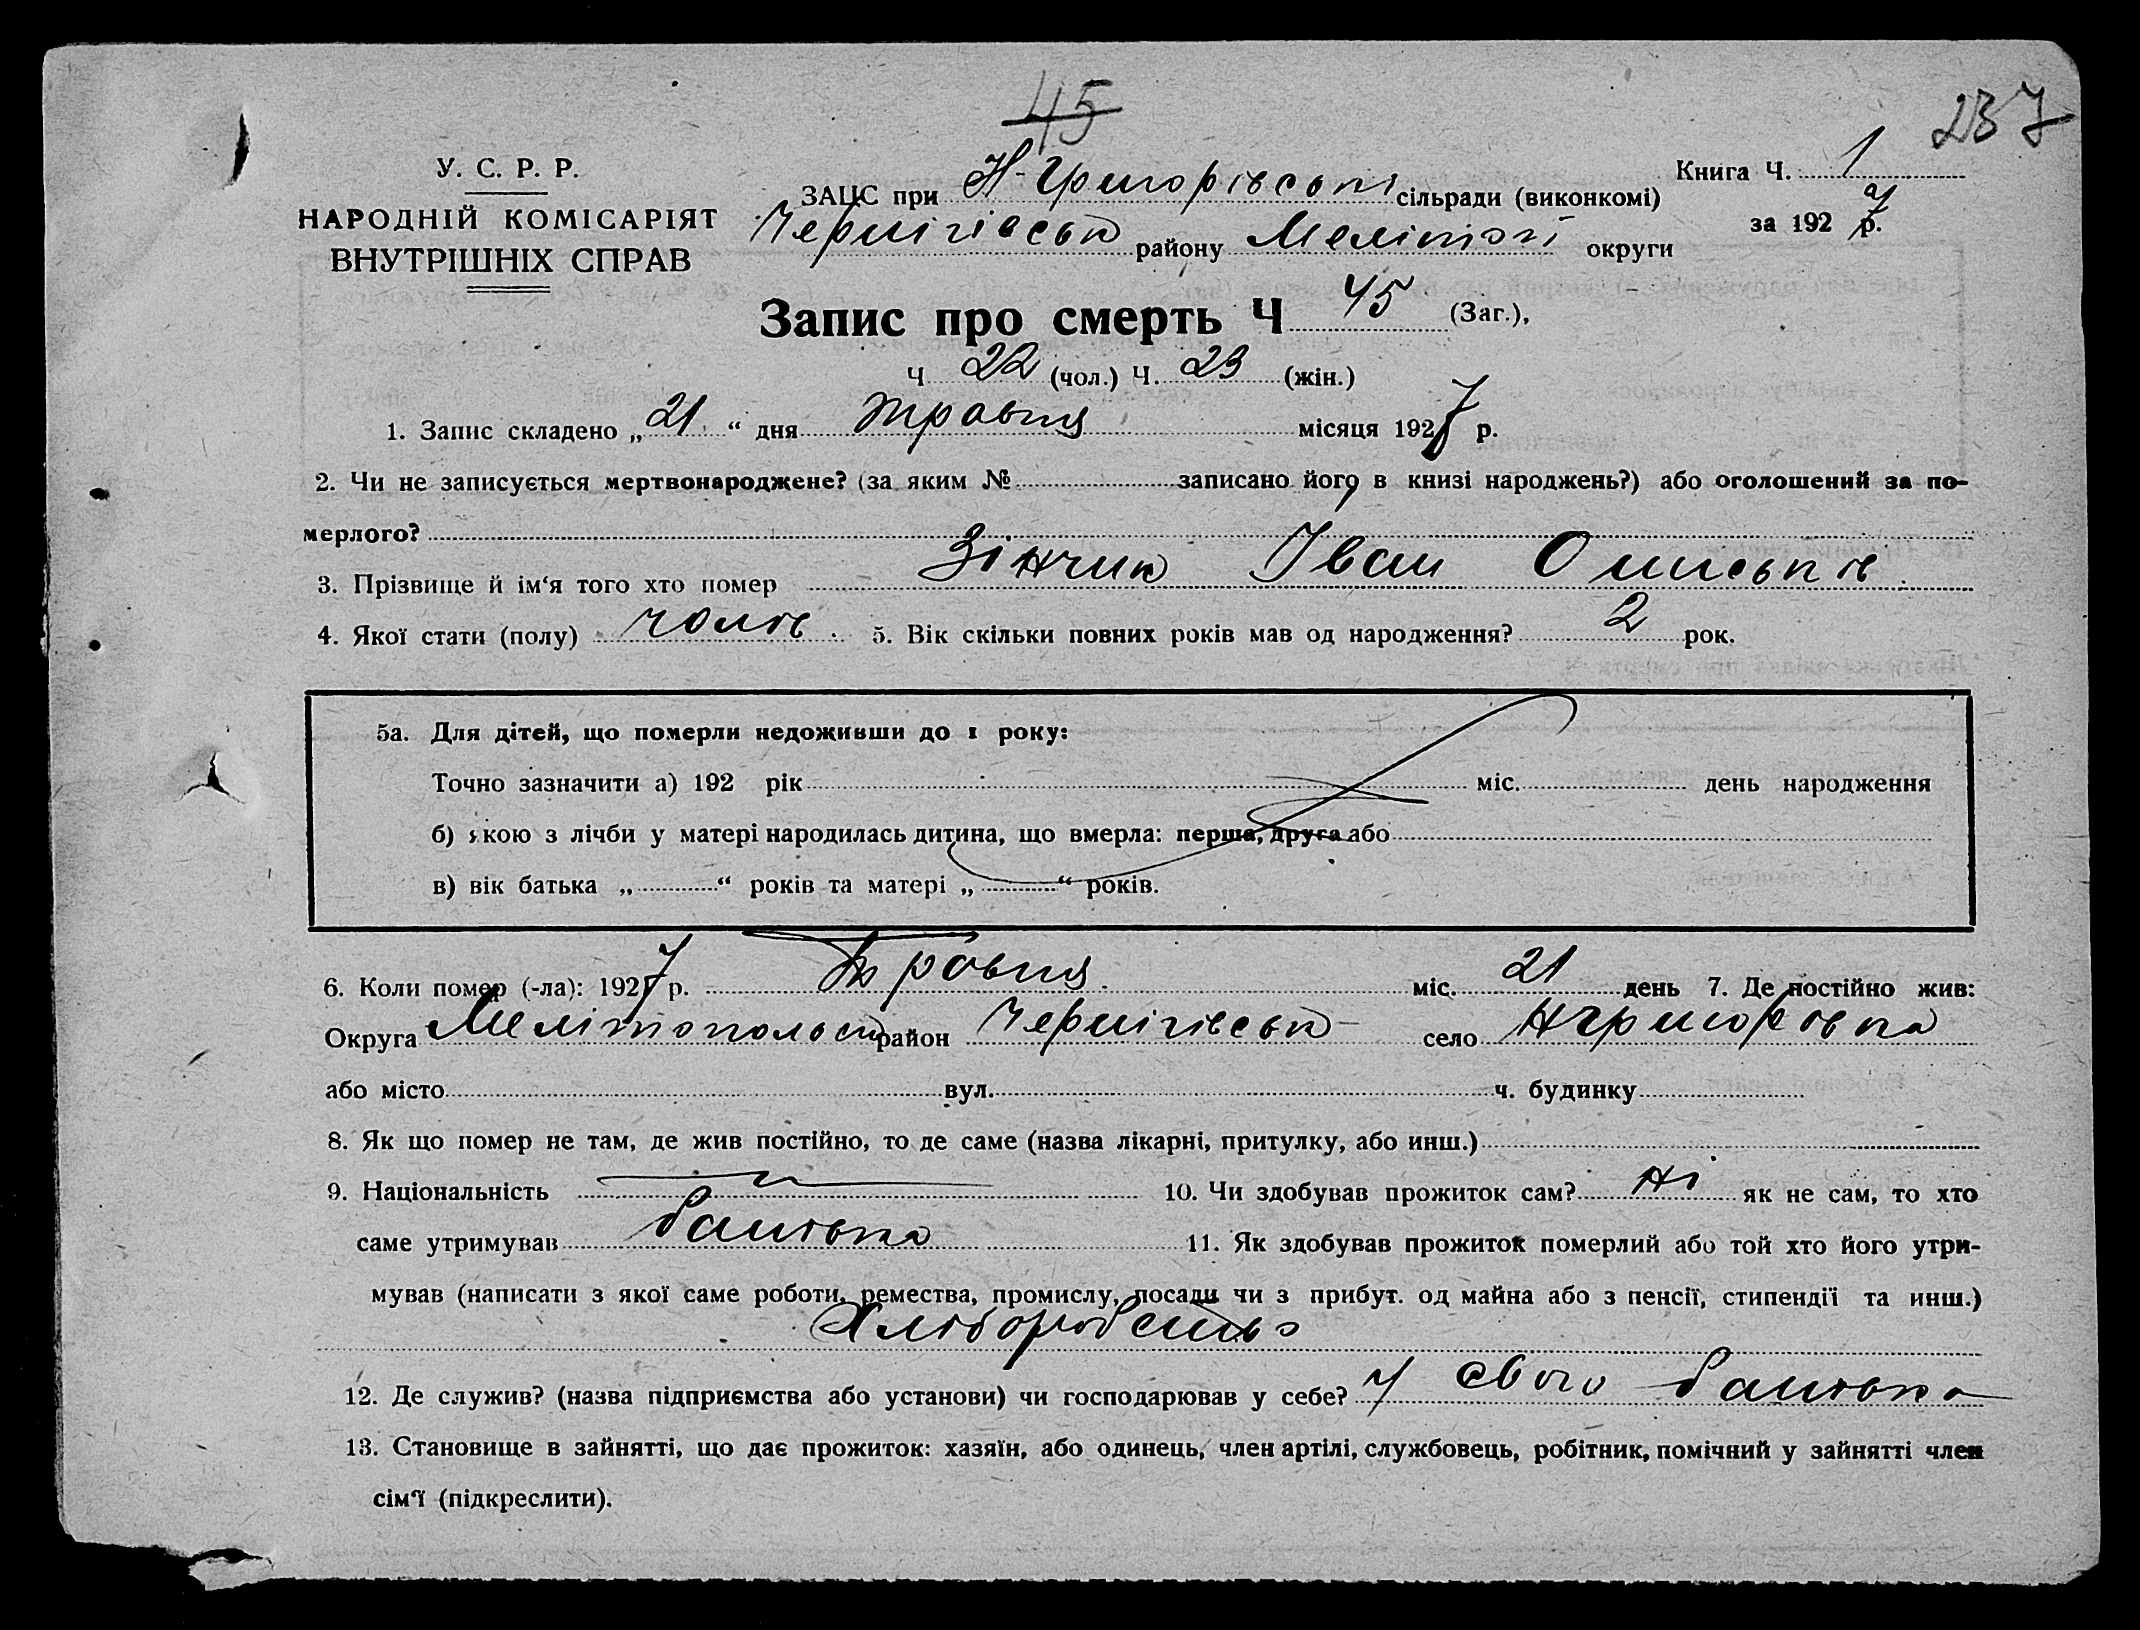 45
237
У. С. Р. Р.
НАРОДНІЙ КОМІСАРІЯТ
ВНУТРІШНІХ СПРАВ
ЗАЦС при Н-Григорівські сільради (виконкомі)
Чернігівськ району Меліт округи
Книга Ч. 1
за 1927 р.
Запис про смерть Ч 45 (Заг.),
Ч 22 (чол.) Ч. 23 (жін.)
1. Запис складено „21“ дня травня місяця 1927 р.
2. Чи не записується мертвонароджене? (за яким № записано його в книзі народжень?) або оголошений за по-
мерлого?
3. Прізвище й ім‘я того хто помер Зінчик Іван
4. Якої стати (полу) чолів. 5. Вік скільки повних років мав од народження? 2 рок.
5а. Для дітей, що померли недоживши до 1 року:
Точно зазначити а) 192 рік міс. день народження
б) якою з лічби у матері народилась дитина, що вмерла: перша, друга або
в) вік батька „ “ років та матері „ “ років.
6. Коли помер (-ла): 1927 р. Травня міс. 21 день 7. Де постійно жив:
Округа Мелітопольськ район Чернігівськ село Нгригорівка
або місто вул. ч. будинку
8. Як що помер не там, де жив постійно, то де саме (назва лікарні, притулку, або инш.)
9. Національність 10. Чи здобував прожиток сам? ні як не сам, то хто
саме утримував батько 11. Як здобував прожиток померлий або той хто його утри-
мував (написати з якої саме роботи, ремества, промислу, посади чи з прибут. од майна або з пенсії, стипендії та инш.)
Хліборобство
12. Де служив? (назва підприємства або установи) чи господарював у себе? У свого батька
13. Становище в зайнятті, що дає прожиток: хазяїн, або одинець, член артілі, службовець, робітник, помічний у зайнятті член
сім‘ї (підкреслити).